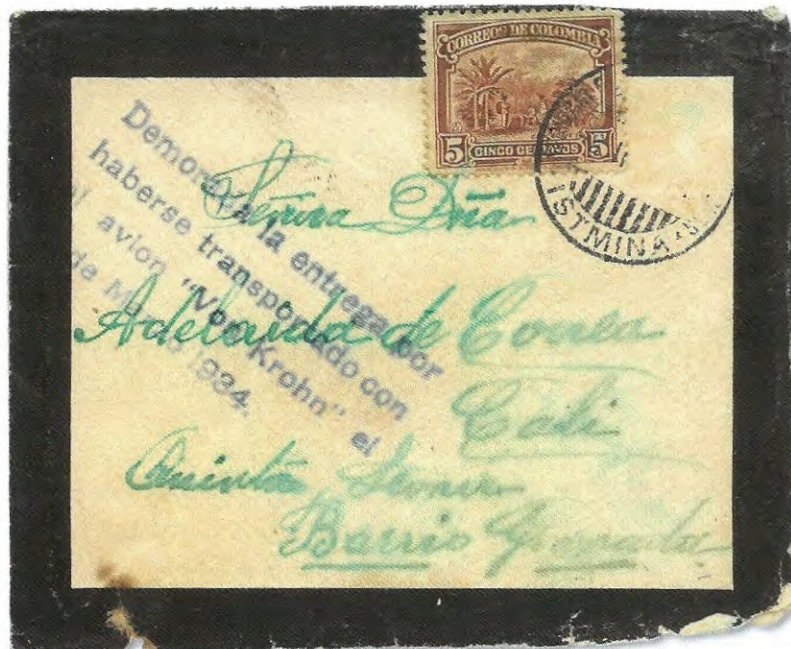 CORREOS DE COLOMBIA
5 CINCO CENTAVOS 5
ISTMINA
Demorada la entrega por
haberse transportado con
avion "Von Krohn" el
de 1934.
Señora Dña
Adelaida de Correa
Cali
Quinta
Barrio Granada